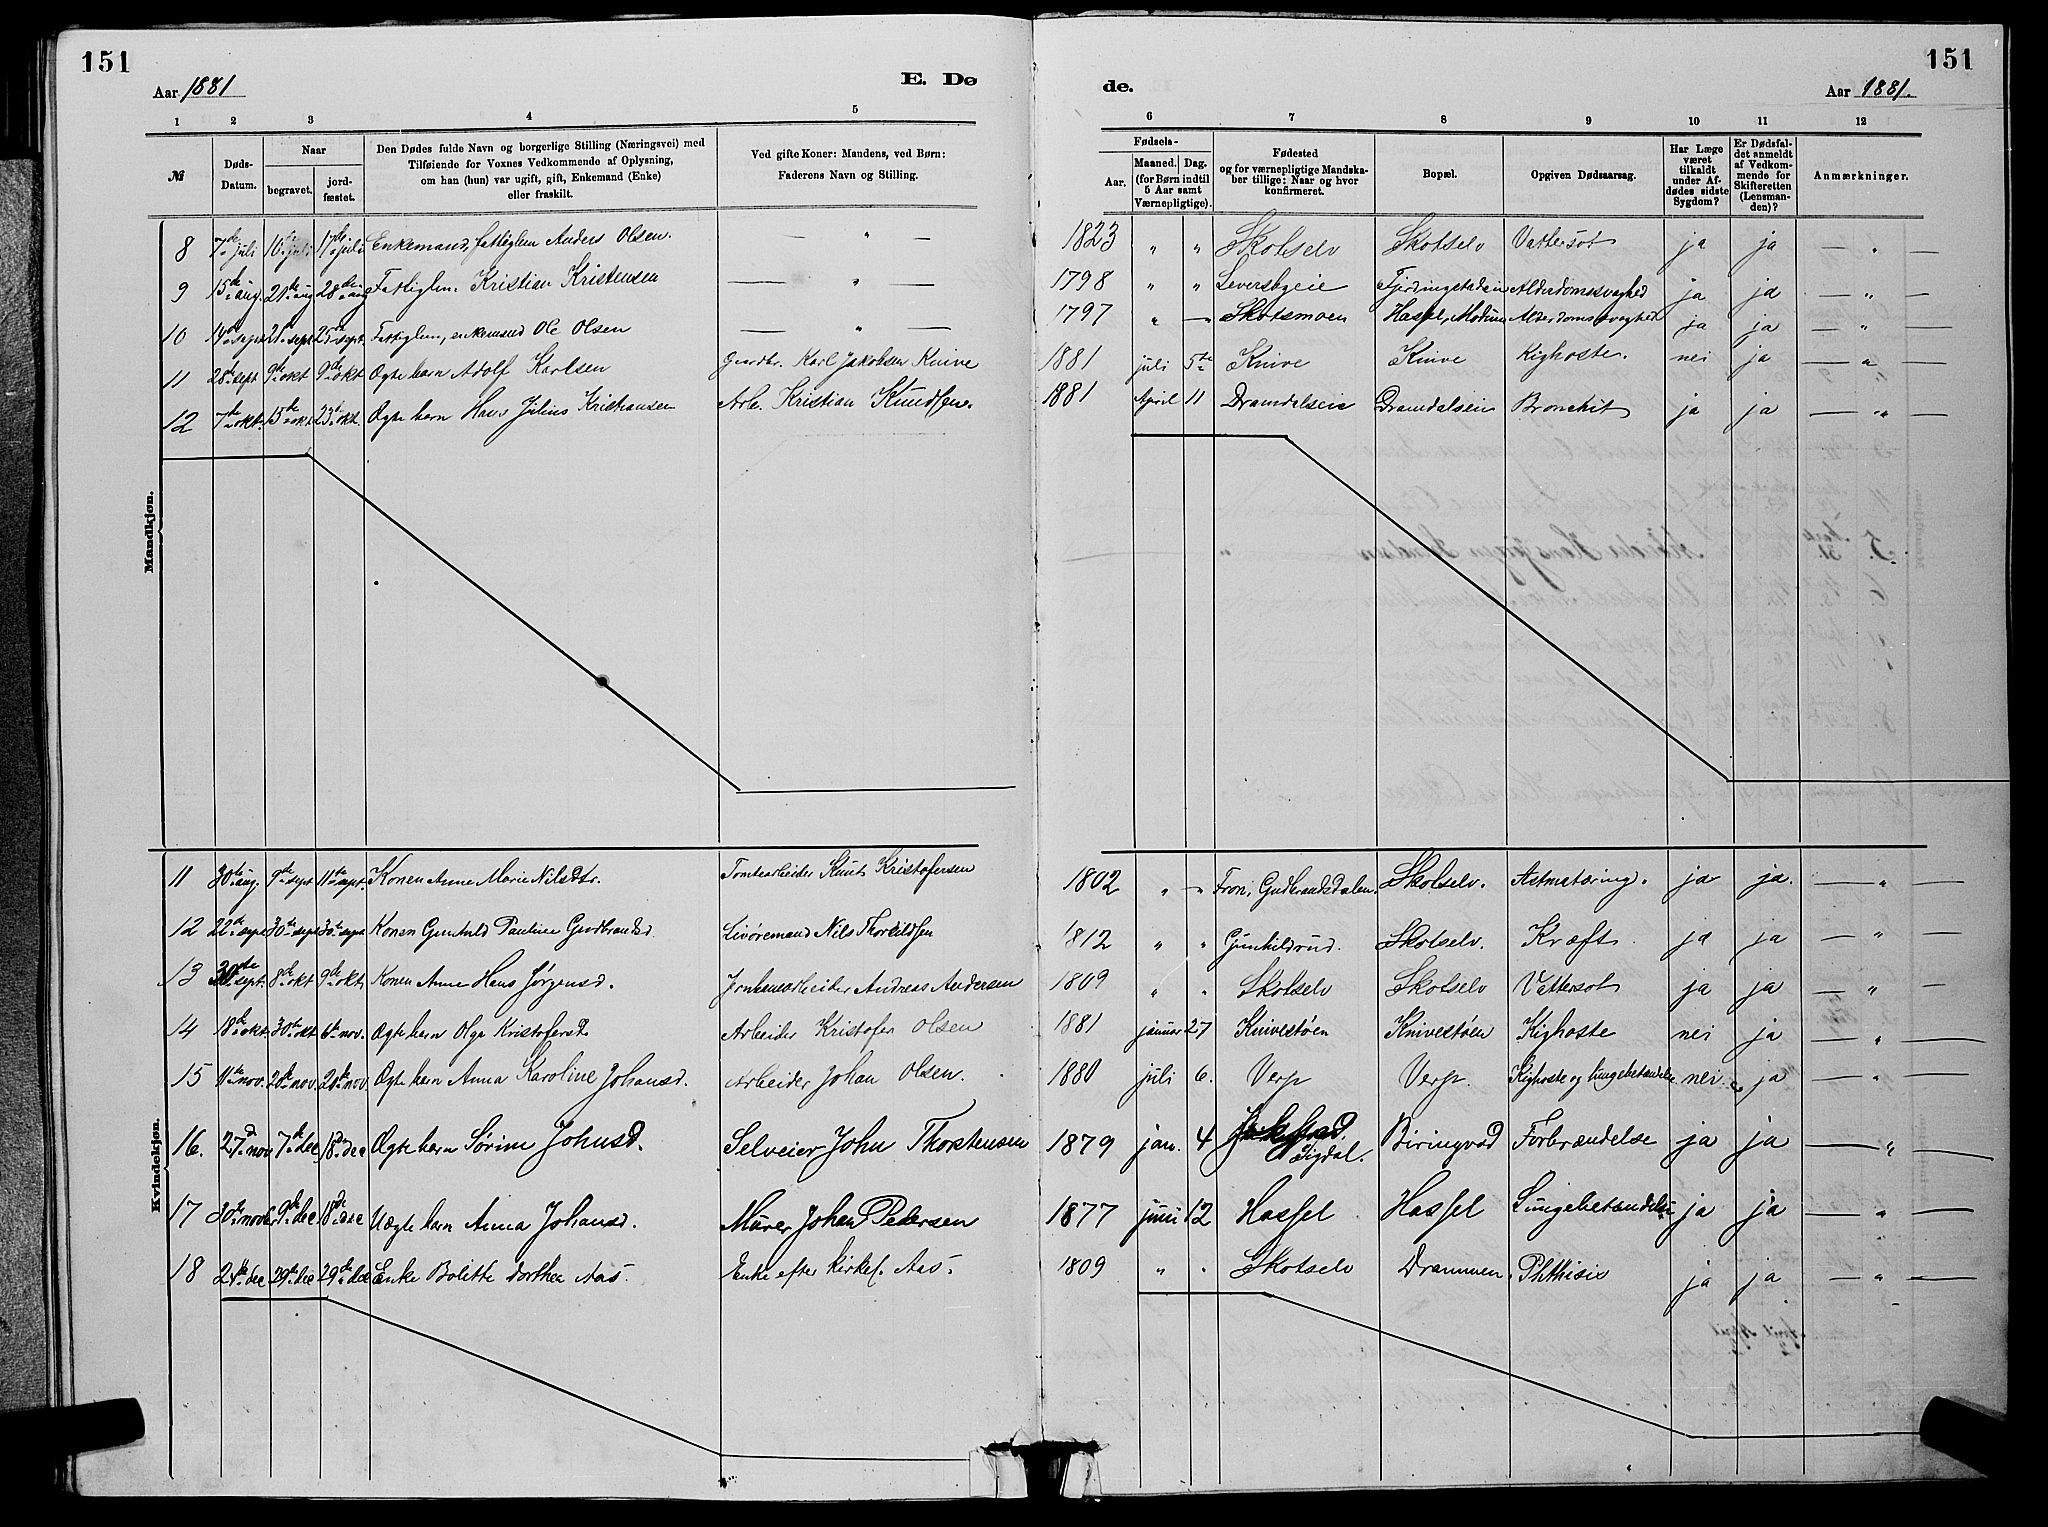 151
151
Aar 1881
E. Dø
de.
Aar 1881.
1 2 3 4 5 6 7 8 9 10 11 12
№
Døds-Datum.
Naar
begravet.
jord-fæstet.
Den Dødes fulde Navn og borgerlige Stilling (Næringsvei) med
Tilføiende for Voxnes Vedkommende af Oplysning,
om han (hun) var ugift, gift, Enkemand (Enke)
eller fraskilt.
Ved gifte Koner: Mandens, ved Børn:
Faderens Navn og Stilling.
Fødsels-
Aar.
Maaned. Dag.
(for Børn indtil
5 Aar samt
Værnepligtige).
Fødested
og for værnepligtige Mandska-
ber tillige: Naar og hvor
konfirmeret.
Bopæl.
Opgiven Dødsaarsag.
Har Læge
været
tilkaldt
under Af-
dødes sidste
Sygdom?
Er Dødsfal-
det anmeldt
af Vedkom-
mende for
Skifteretten
(Lensman-
den)?
Anmærkninger.
Mandkjøn.
8 7de juli 10de juli 17de juli Enkemand, fattiglem Anders Olsen. — " — 1823 " " Skotselv Skotselv Vattersot ja ja — " —
9 15de aug. 21de aug 28de aug Fattiglem. Kristian Kristensen — " — 1798 " " Leversbyeie Alderdomssvaghed ja ja — " —
10 14de sept 21de sept 25de sept. Fattiglem, enkemand Ole Olsen — " — 1797 " — Skotsmoen Hassel, Modum Alderdomssvaghed ja ja — " —
11 28de sept 9de okt 9de okt Ægte barn Adolf Karlsen Gaardbr. Karl Jakobsen Knive 1881 juli 5te Knive Knive Kighoste. nei ja — " —
12 7de okt. 15de okt 23de okt. Ægte barn Hans Julius Kristiansen Arb. Kristian Knudsen. 1881 April 11 Dramdalseie Dramdalseie Bronchit ja ja — " —
Kvindekjøn.
11 30te aug. 9de sept 11te sept. Konen Anne Marie Nilsdtr. Tomtearbeider Knut Kristofersen 1802 " — Fron, Gudbrandsdalen Skotselv. Astmatæring. ja ja. — " —
12 22de sept 30te sept 30te sept Konen Gunhild Pauline Gudbrandsd. Livøremand Nils Thorkildsen 1812 " " Gunhildrud. Skotselv. Kræft. ja ja — " —
13 30te sept. 8de okt 9de okt. Konen Anne Hans Jørgensd. Arbeider Andreas Andersen 1809 " " Skotselv Skotselv Vattersot ja ja — " —
14 18de okt. 30te okt 6te nov. Ægte barn Olga Kristofersd. Arbeider Kristofer Olsen 1881 januar 27 Knivestøen Knivestøen Kighoste nei ja — " —
15 11te nov. 20de nov. 20de nov Ægte barn Anna Karoline Johansd. Arbeider Johan Olsen. 1880 juli 6. Verp Verp. Kighoste og lungebetændelse nei ja — " —
16. 27d nov 7de dec 18de dec Ægte barn Sørine Johnsd. Selveier John Thorstensen 1879 jan. 4 Sigdal. Biringvad Forbrændelse ja ja — " —
17 30te nov 9de dec 18de dec Uægte barn Anna Johansd. Murer Johan Pedersen 1877 juni 12 Hassel Hassel Lungebetændelse ja ja — " —
18 24de dec 29de dec 29de dec Enke Bolitte Dorthea Aas. Enke efter Kirkes. Aas. 1809 " " Skotselv Drammen. Phthisis ja ja — " —